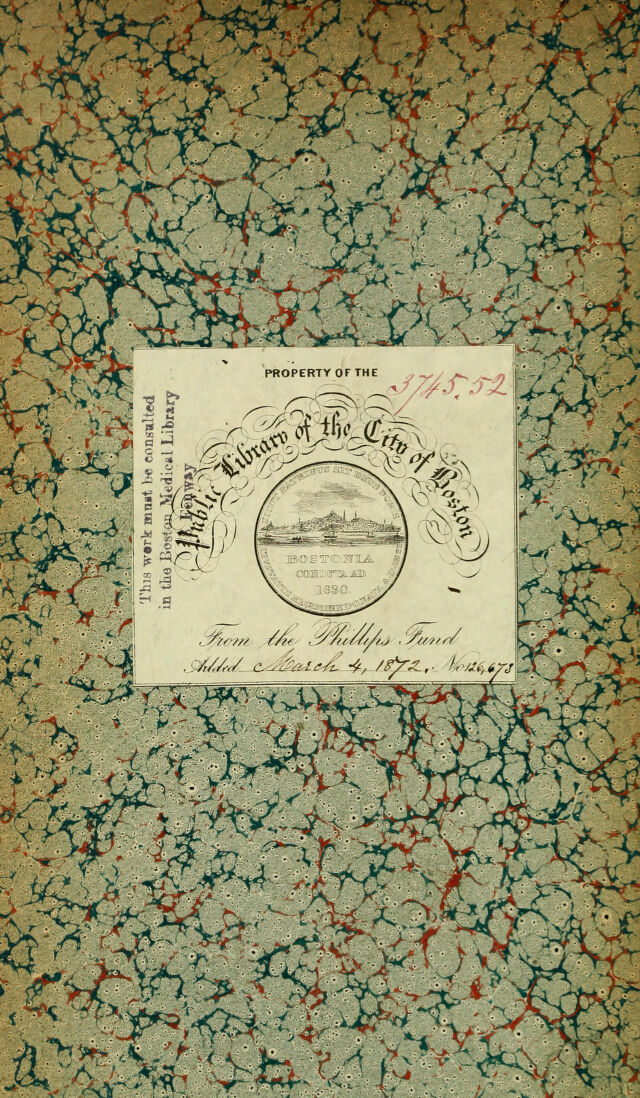 PROPERTY OF THE
3745.52
Public Library of the City of Boston
SICUT PATRIBUS SIT DEUS NOBIS
BOSTONIA
CONDITA AD
1630
From the Phillips Fund
Added March 4, 1872. No 126,673
This work must be consulted
in the Boston Medical Library
Fenway